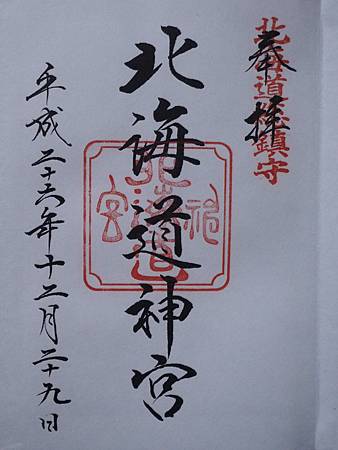 奉拝
北海道総鎮守
北海道神宮
平成二十六年十二月二十九日